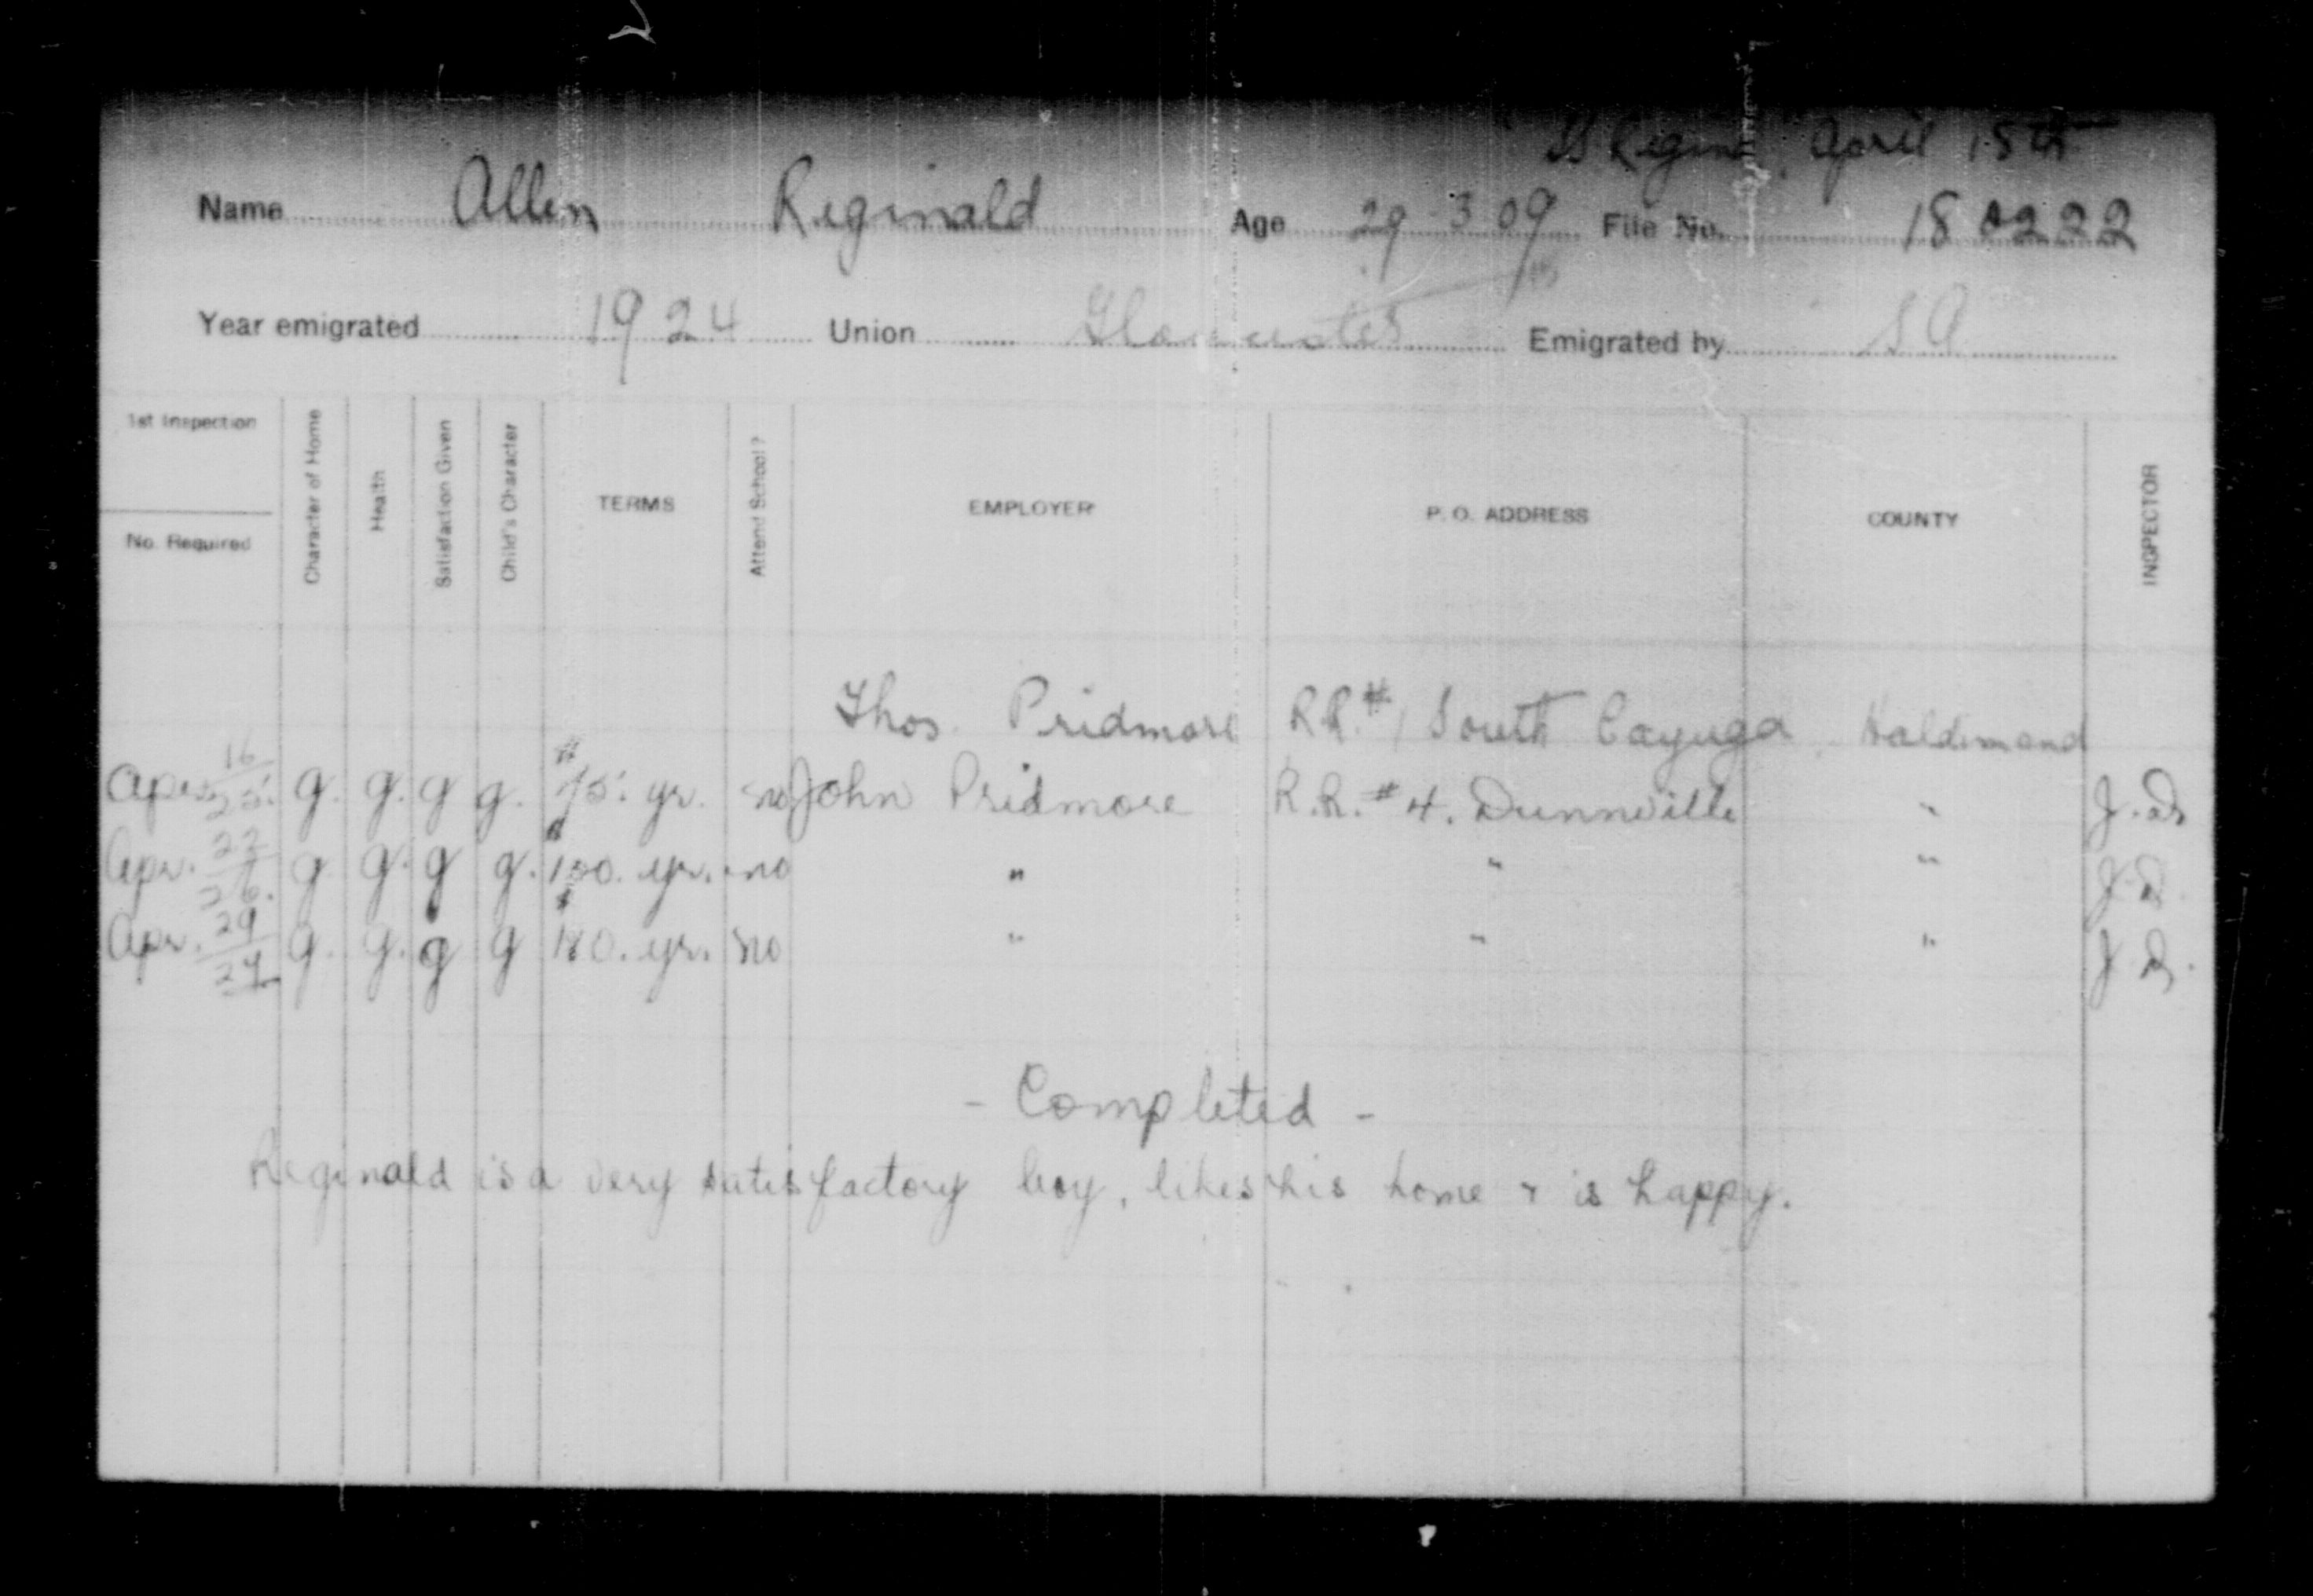 SS Regina April 15th
Name Allen Reginald Age 29 3 09 File No. 180222
15
Year emigrated 1924 Union Gloucester Emigrated by S A
1st Inspection
No. Required
Character of Home
Health
Satisfaction Given
Child's Character
TERMS
Attend School?
EMPLOYER
P. O. ADDRESS
COUNTY
INSPECTOR
Thos. Pridmore R.R.#1 South Cayuga Haldimand
Apr. 16/25. g. g. g g. $75. yr. no John Pridmore R.R.#4. Dunnville " J.D.
Apr. 22/26. g g. g g. $100. yr. no " " " J.D.
Apr. 29/27 g. g. g g $180. yr. no " " " J.D.
- Completed -
Reginald is a very satisfactory boy, likes his home & is happy.